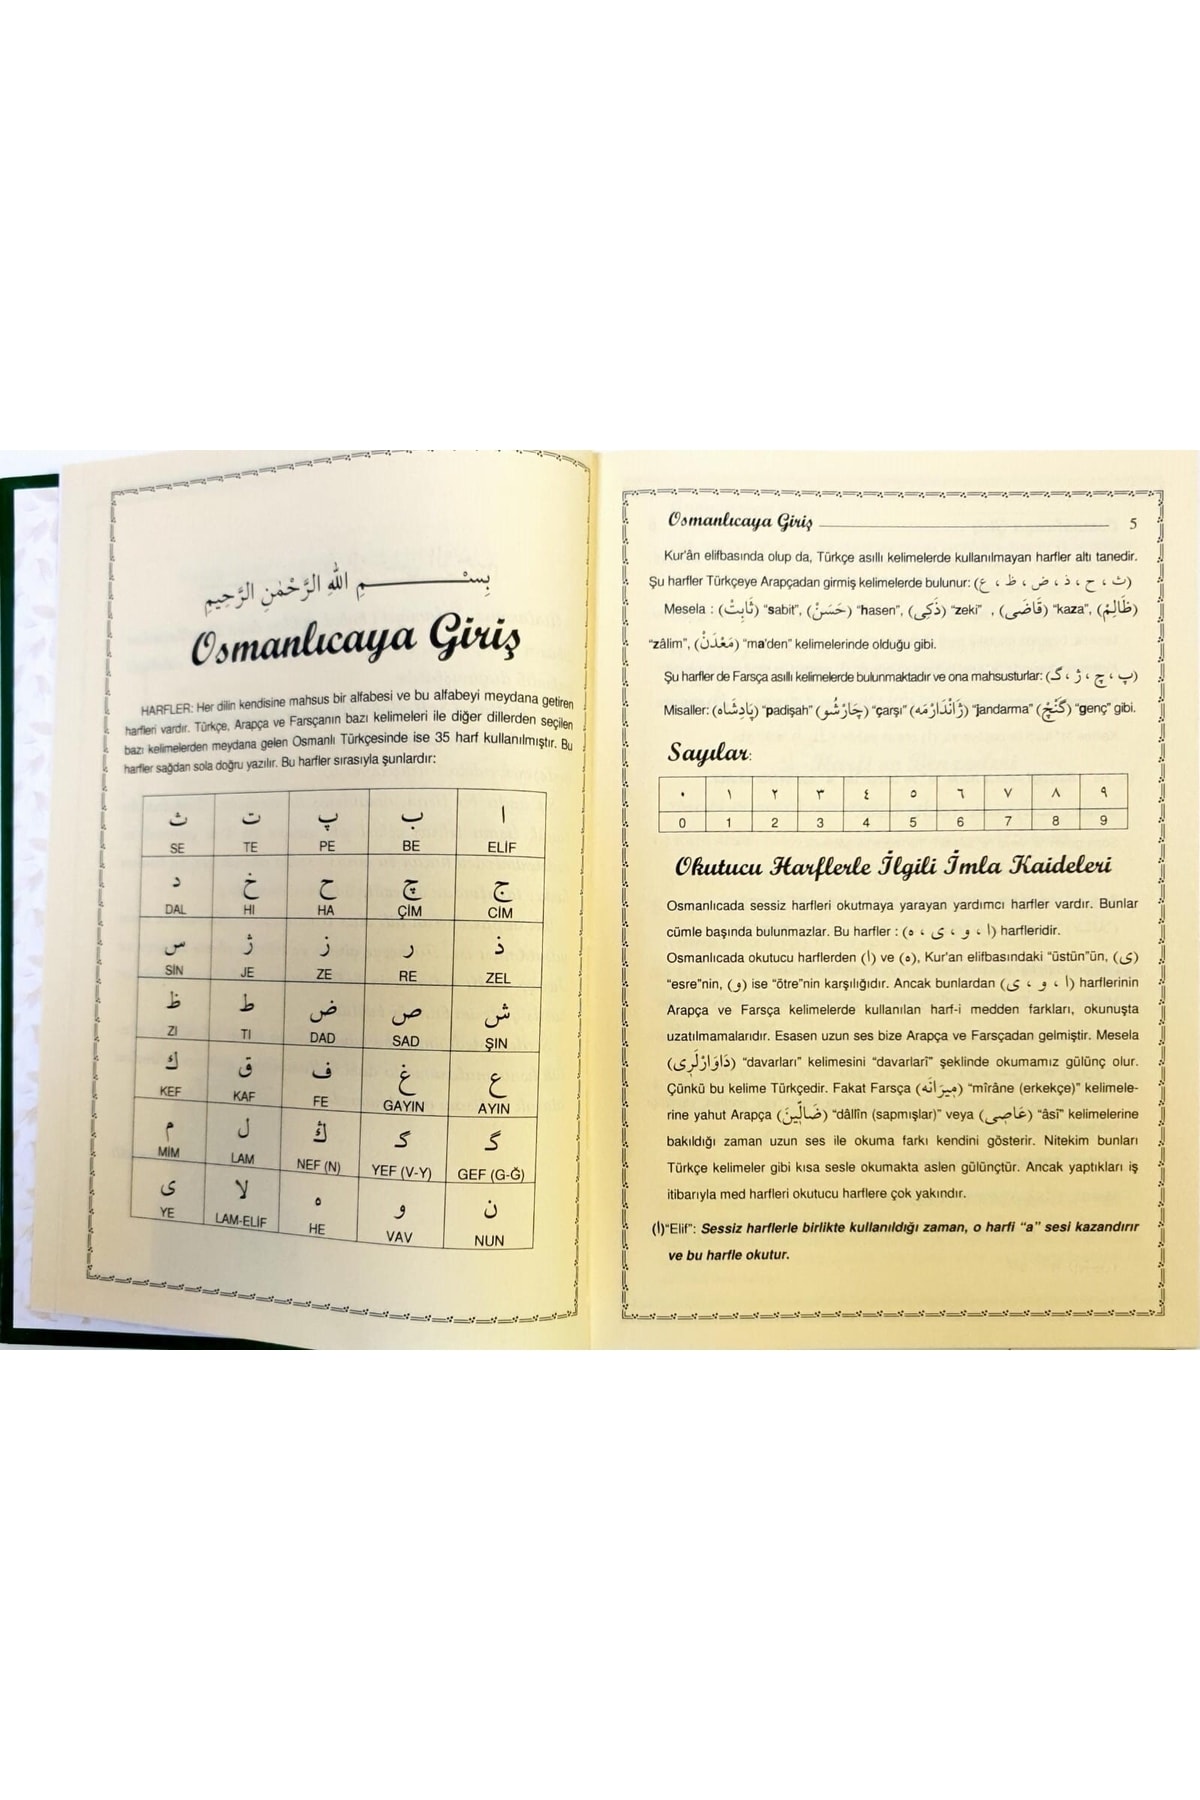 بِسْــــــمِ اللهِ الرَّحْمٰنِ الرَّحِيمِ
Osmanlıcaya Giriş
HARFLER: Her dilin kendisine mahsus bir alfabesi ve bu alfabeyi meydana getiren
harfleri vardır. Türkçe, Arapça ve Farsçanın bazı kelimeleri ile diğer dillerden seçilen
bazı kelimelerden meydana gelen Osmanlı Türkçesinde ise 35 harf kullanılmıştır. Bu
harfler sağdan sola doğru yazılır. Bu harfler sırasıyla şunlardır:
ث ت پ ب ا
SE TE PE BE ELİF
د خ ح چ ج
DAL HI HA ÇİM CİM
س ژ ز ر ذ
SİN JE ZE RE ZEL
ظ ط ض ص ش
ZI TI DAD SAD ŞIN
ك ق ف غ ع
KEF KAF FE GAYIN AYIN
م ل ڭ گ گ
MİM LAM NEF (N) YEF (V-Y) GEF (G-Ğ)
ى لا ه و ن
YE LAM-ELİF HE VAV NUN
Osmanlıcaya Giriş 5
Kur'ân elifbasında olup da, Türkçe asıllı kelimelerde kullanılmayan harfler altı tanedir.
Şu harfler Türkçeye Arapçadan girmiş kelimelerde bulunur: (ث ، ح ، ذ ، ض ، ظ ، ع)
Mesela : (ثَابِتْ) “sabit”, (حَسَنْ) “hasen”, (ذَكِى) “zeki” , (قَاضَى) “kaza”, (ظَالِمْ)
“zâlim”, (مَعْدَنْ) “ma'den” kelimelerinde olduğu gibi.
Şu harfler de Farsça asıllı kelimelerde bulunmaktadır ve ona mahsusturlar: (پ ، چ ، ژ ، گ)
Misaller: (پَادِشَاه) “padişah” (چَارْشُو) “çarşı” (ژَانْدَارْمَه) “jandarma” (گَنْچْ) “genç” gibi.
Sayılar:
٠ ١ ٢ ٣ ٤ ٥ ٦ ٧ ٨ ٩
0 1 2 3 4 5 6 7 8 9
Okutucu Harflerle İlgili İmla Kaideleri
Osmanlıcada sessiz harfleri okutmaya yarayan yardımcı harfler vardır. Bunlar
cümle başında bulunmazlar. Bu harfler : (ا ، و ، ى ، ه) harfleridir.
Osmanlıcada okutucu harflerden (ا) ve (ه), Kur'an elifbasındaki “üstün”ün, (ى)
“esre”nin, (و) ise “ötre”nin karşılığıdır. Ancak bunlardan (ا ، و ، ى) harflerinin
Arapça ve Farsça kelimelerde kullanılan harf-i medden farkları, okunuşta
uzatılmamalarıdır. Esasen uzun ses bize Arapça ve Farsçadan gelmiştir. Mesela
(دَاوَارْلَرِى) “davarları” kelimesini “davarlarî” şeklinde okumamız gülünç olur.
Çünkü bu kelime Türkçedir. Fakat Farsça (مِيرَانَه) “mîrane (erkekçe)” kelimele-
rine yahut Arapça (ضَالِّينَ) “dâllîn (sapmışlar)” veya (عَاصِى) “âsî” kelimelerine
bakıldığı zaman uzun ses ile okuma farkı kendini gösterir. Nitekim bunları
Türkçe kelimeler gibi kısa sesle okumakta aslen gülünçtür. Ancak yaptıkları iş
itibarıyla med harfleri okutucu harflere çok yakındır.
(ا)“Elif”: Sessiz harflerle birlikte kullanıldığı zaman, o harfi “a” sesi kazandırır
ve bu harfle okutur.